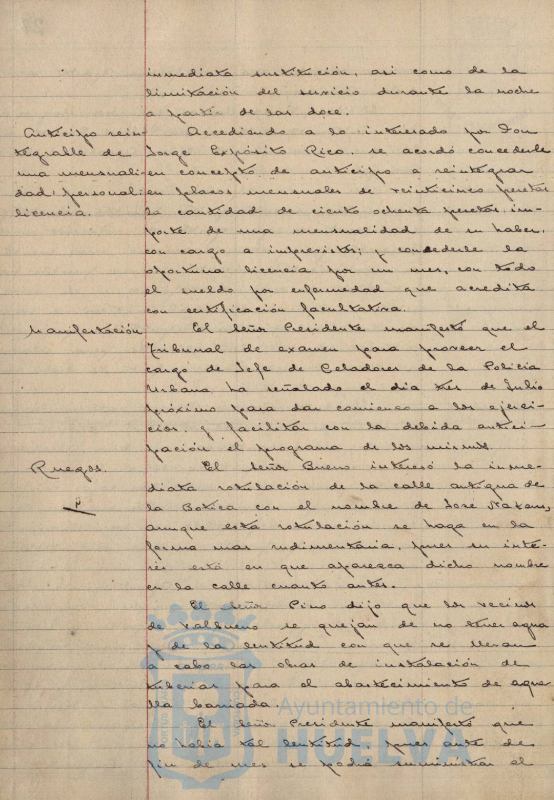 inmediata sustitución, así como de la
limitación del servicio durante la noche
a partir de las doce.
Anticipo rein-
tegrable de
una mensuali-
dad, personal:
licencia.
Accediendo a lo interesado por Don
Jorge Expósito Rico, se acordó concederle
en concepto de anticipo a reintegrar
en plazos mensuales de veinticinco pesetas
la cantidad de ciento ochenta pesetas, im-
porte de una mensualidad de su haber,
con cargo a imprevistos; y concederle la
oportuna licencia por un mes, con todo
el sueldo por enfermedad que acredita
con certificación facultativa.
Manifestación
El Señor Presidente manifestó que el
Tribunal de examen para proveer el
cargo de Jefe de Celadores de la Policía
Urbana ha señalado el día tres de Julio
próximo para dar comienzo a los ejerci-
cios, y facilitar con la debida antici-
pación el programa de los mismos.
Ruegos.
El Señor Bueno interesó la inme-
diata rotulación de la calle antigua de
la Botica con el nombre de José Nakens,
aunque esta rotulación se haga en la
forma mas rudimentaria, pues su inte-
rés está en que aparezca dicho nombre
en la calle cuanto antes.
El Señor Pino dijo que los vecinos
de Valbueno se quejan de no tener agua
y de la lentitud con que se llevan
a cabo las obras de instalación de
tuberias para el abastecimiento de aque-
lla barriada.
El Señor Presidente manifestó que
no había tal lentitud, pues antes de
fin de mes se podrá suministrar el
Ayuntamiento de
HUELVA